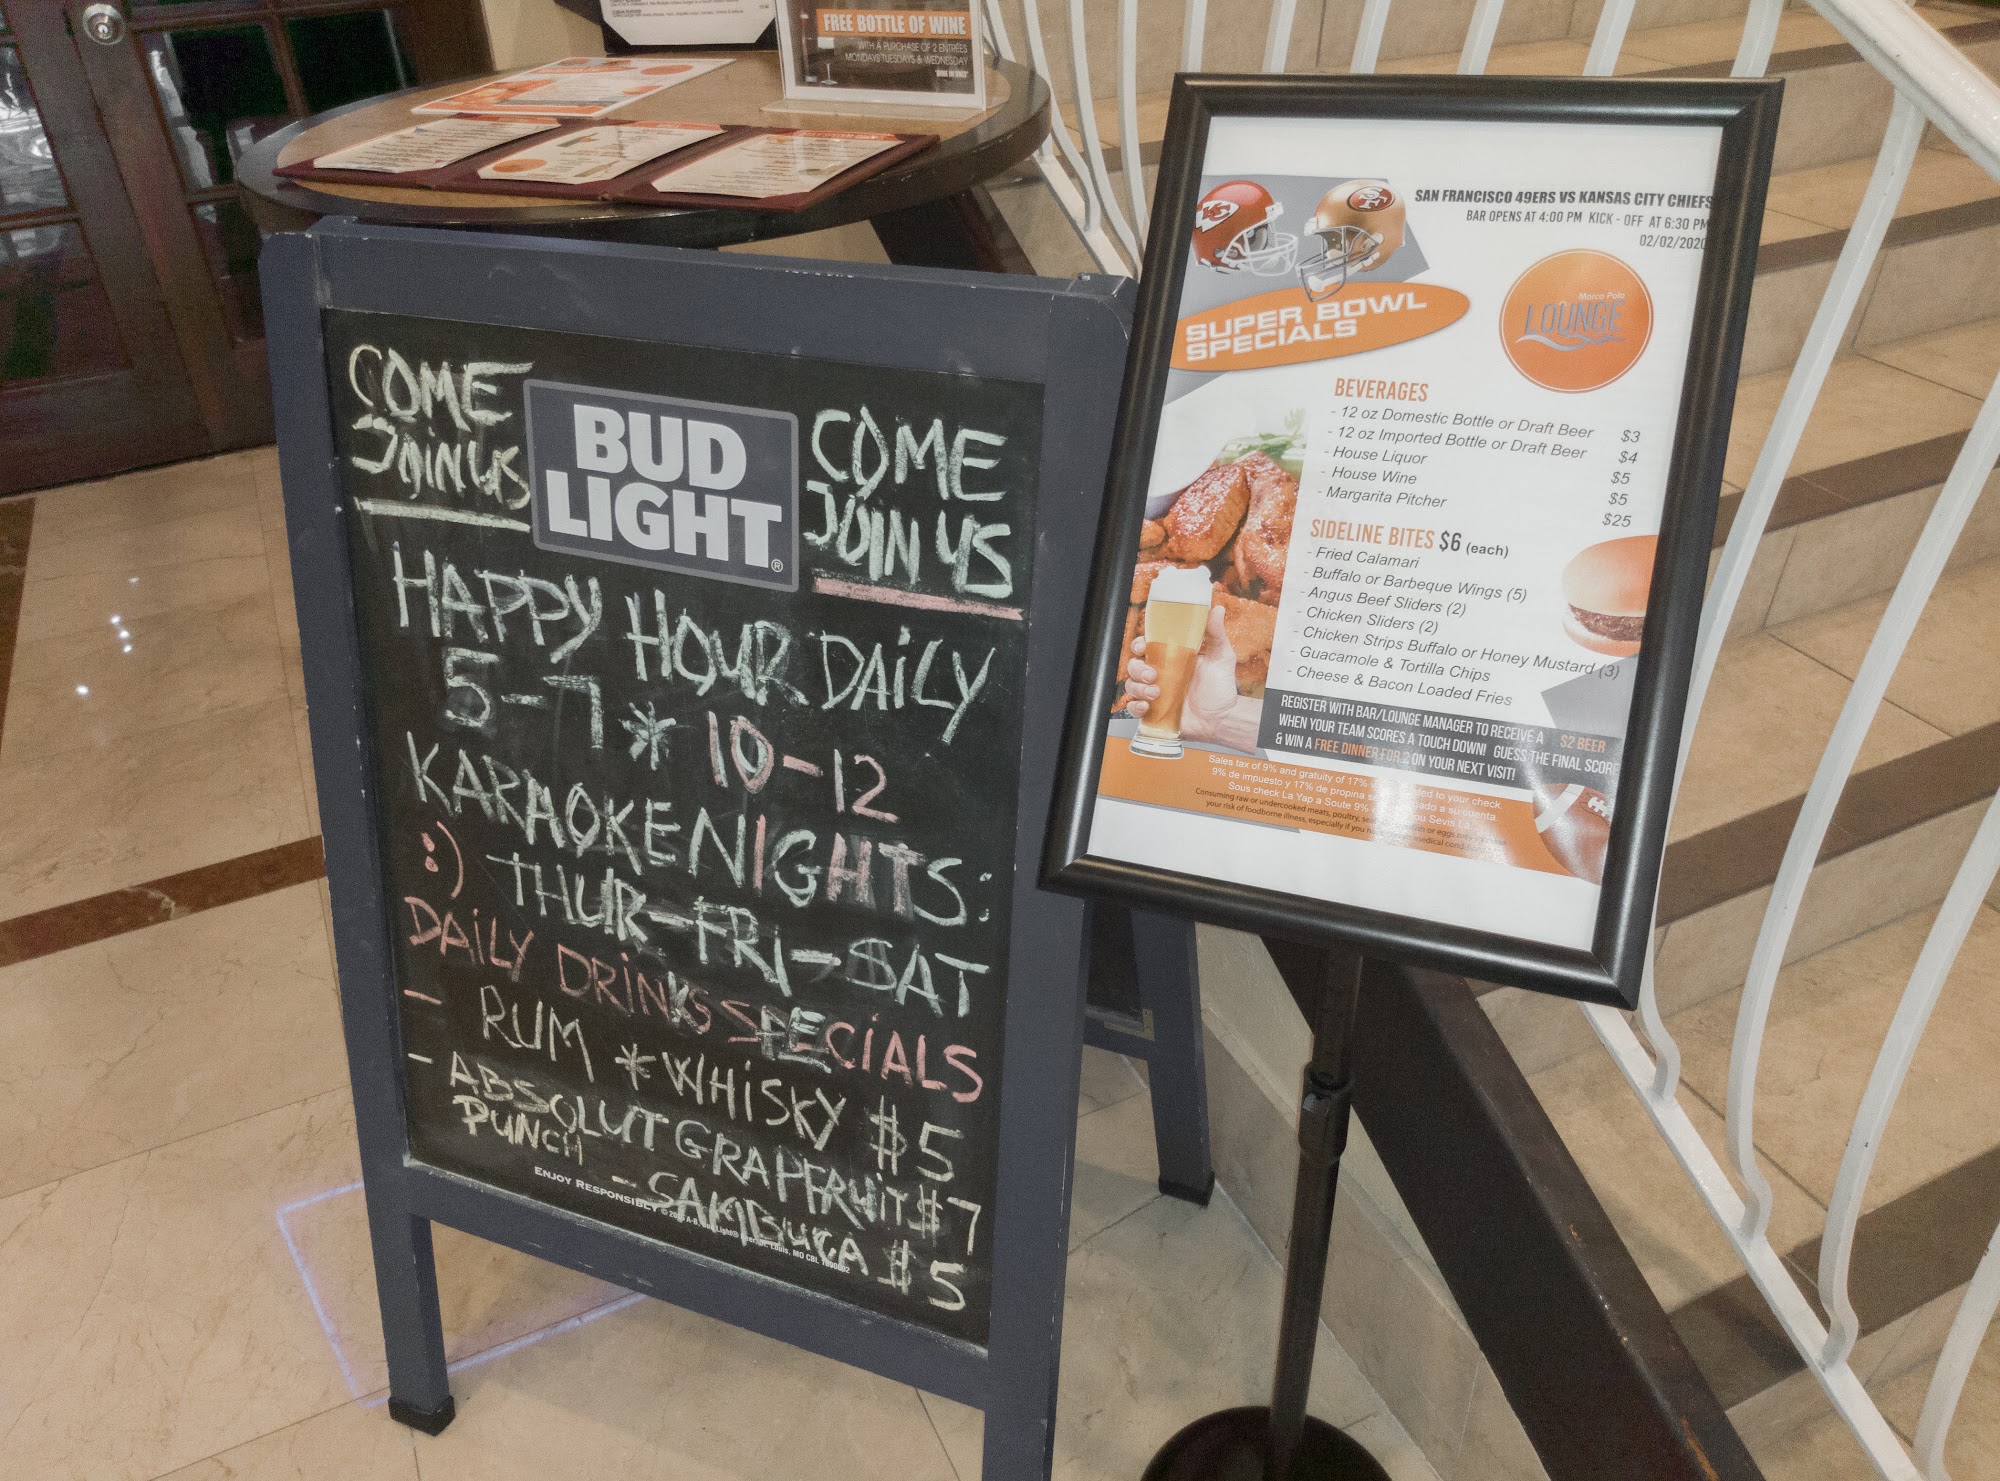 FREE BOTTLE OF WINE
WITH A PURCHASE OF 2 ENTRÉES
MONDAYS TUESDAYS & WEDNESDAY
COME
JOIN US
BUD
LIGHT®
COME
JOIN US
HAPPY HOUR DAILY
5-7 * 10-12
KARAOKE NIGHTS:
:) THUR-FRI-SAT
DAILY DRINKS SPECIALS
- RUM * WHISKY $5
- ABSOLUT GRAPEFRUIT $7
PUNCH
- SAMBUCA $5
ENJOY RESPONSIBLY
SAN FRANCISCO 49ERS VS KANSAS CITY CHIEFS
BAR OPENS AT 4:00 PM KICK - OFF AT 6:30 PM
02/02/2020
Marco Polo
LOUNGE
SUPER BOWL
SPECIALS
BEVERAGES
- 12 oz Domestic Bottle or Draft Beer $3
- 12 oz Imported Bottle or Draft Beer $4
- House Liquor $5
- House Wine $5
- Margarita Pitcher $25
SIDELINE BITES $6 (each)
- Fried Calamari
- Buffalo or Barbeque Wings (5)
- Angus Beef Sliders (2)
- Chicken Sliders (2)
- Chicken Strips Buffalo or Honey Mustard (3)
- Guacamole & Tortilla Chips
- Cheese & Bacon Loaded Fries
REGISTER WITH BAR/LOUNGE MANAGER TO RECEIVE A $2 BEER
WHEN YOUR TEAM SCORES A TOUCH DOWN! GUESS THE FINAL SCORE
& WIN A FREE DINNER FOR 2 ON YOUR NEXT VISIT!
Sales tax of 9% and gratuity of 17% to your check.
9% de impuesto y 17% de propina a su cuenta
Sous check La Yap a Soute 9%
Consuming raw or undercooked meats, poultry, or eggs
your risk of foodborne illness, especially if you medical